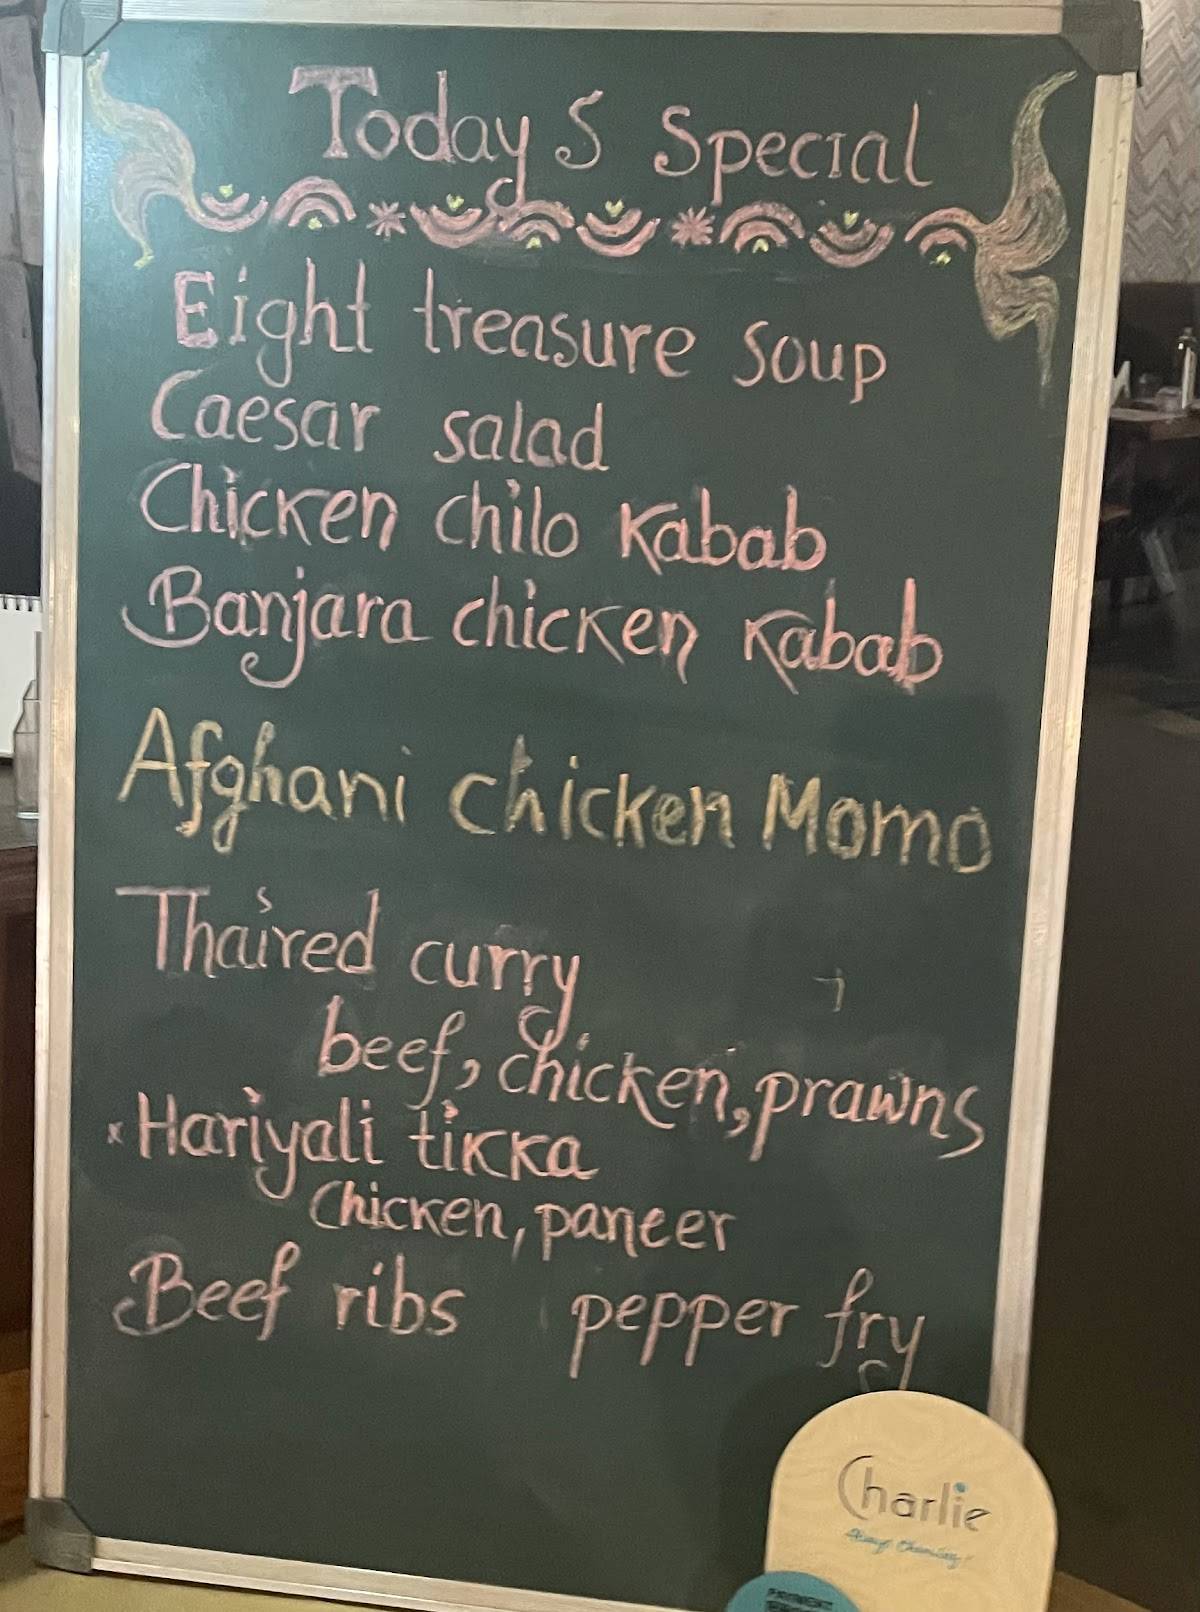 Today S Special
Eight treasure soup
Caesar salad
Chicken chilo Kabab
Banjara chicken Kabab
Afghani chicken Momo
Thaired curry
beef, chicken, prawns
x Hariyali tikka
Chicken, paneer
Beef ribs pepper fry
Charlie
Always Charming!
PAYMENT